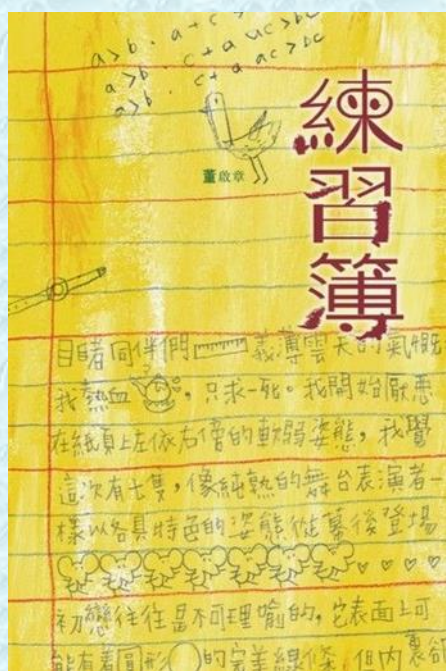 a>b . a+c
a>b . c+a
a>b . c+a ac>bc
練習簿
董啟章
目睹同伴們 義薄雲天的氣慨
我熱血 ,只求一死。我開始厭惡
在紙頁上左依右傍的軟弱姿態,我覺
這次有七隻,像純熟的舞台表演者一
樣以各具特色的姿態從幕後登場
初戀往往是不可理喻的,它表面上可
能有着圓形 的完美線條,但內裏